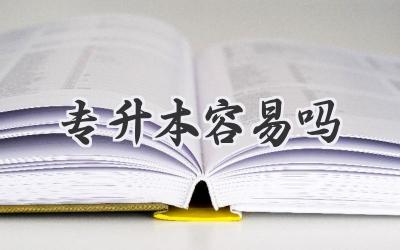 专升本容易吗